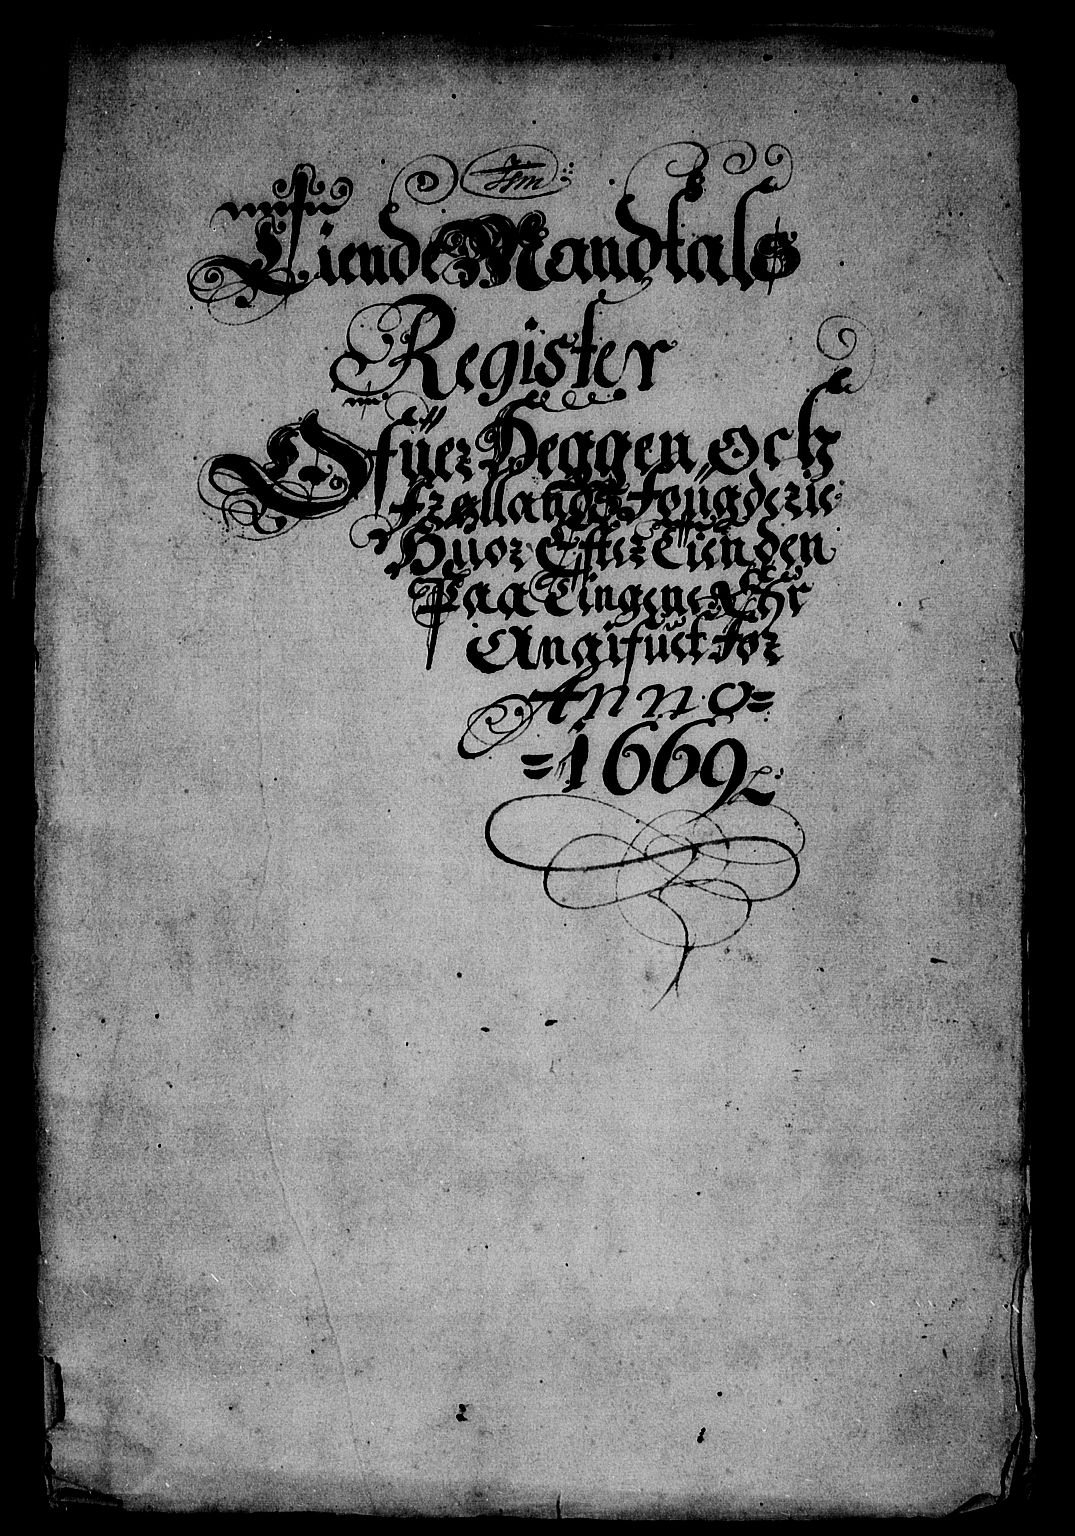 Tiende Mandtals
Register
Ofuer Heggen och
Frøllands Fougderie
Huor Efter Tienden
Paa Tingene Ehr
Angifuet for
Anno=
=1669